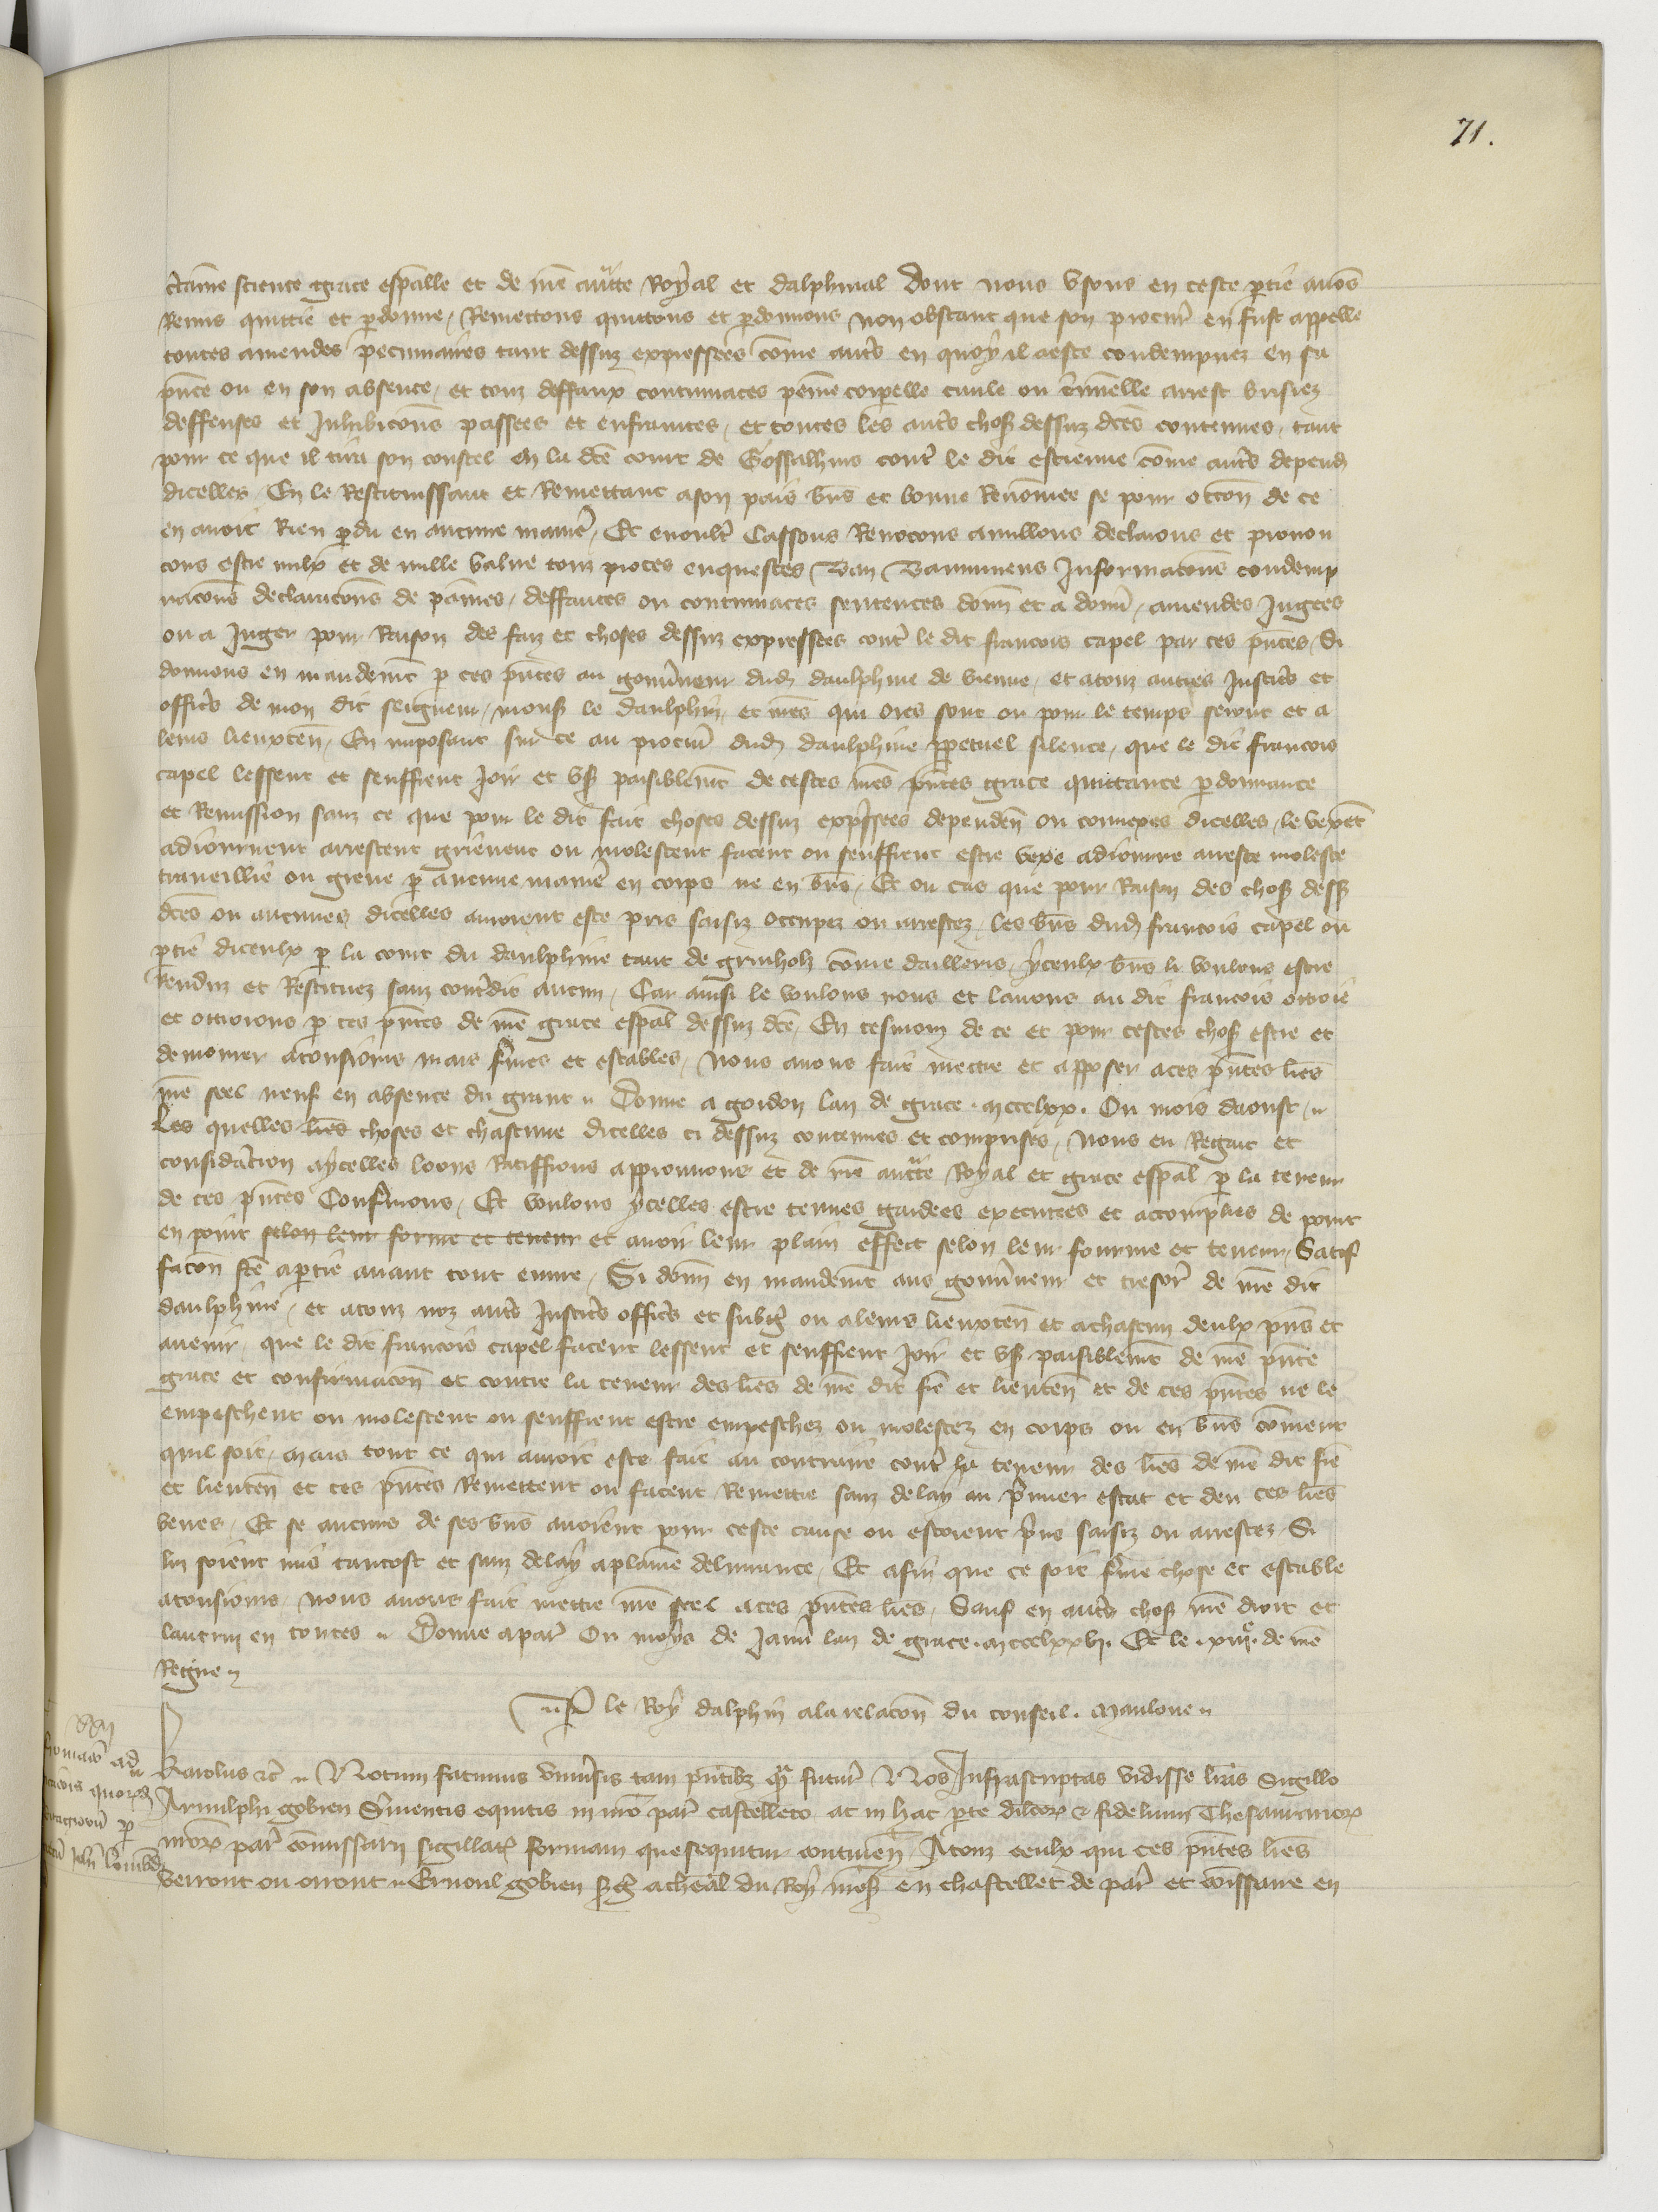 71.
c̃taine science grace esp̃alle et de nr̃e auctte Royal et dalphinal dont nous vsons en ceste p̱tie auõs
Remis quittie et p̱donne, Remettons quittons et p̱donnons non obstant que son procur̃ en fust appelle
toutes amendes peccuniaires tant dessuz expressees cõme autr̃s en quoy il a este condempnez en sa
p̃nce ou en son absence, et touz deffaux contumaces peine corp̱elle ciuile ou c̃minelle arrest brisiez
deffenses et Inhibicõns passees et enfraintes, et toutes les autr̃s chos̃ dessuz dc̃es contenues, tant
pour ce que il tira son coustel en la dc̃e court de contr̃ le dit estienne cõme autr̃s depend̃
dicelles En le Restituissant et Remettant a son pais bñs et bonne Renõmee se pour occõn de ce
en auoit Rien p̱du en aucune manier̃, Et enoultr̃ Cassons Reuocons anullons declarons et pronon
cons estre nulx et de nulle value touz proces enquestes Ban Bannimens Informacõns condemp
nacõns declaracõns de paines, deffautes ou contumaces sentences donn̄ et a donn̄, amendes Jugees
ou a Juger pour Raison des faiz et choses dessuz expressees contr̃ le dit francois capel par ces p̃ntes, Si
donnons en mandemt̃ p̱ ces p̃ntes au gouũneur dud̃ daulphine de vienne, et atouz autres Justic̃s et
offic̃s de mon dit seigneur, mons̃ le daulphin, et nr̃es qui ores sont ou pour le temps seront et a
leurs lieuxten̄, En imposant sur ce au procur̃ dud̃ daulphine p̱petuel silence, que le dit francois
capel lessent et seuffrent Joir et vs̃ paisiblemt̃ de cestes nr̃es p̃ntes grace quittance p̱donnance
et Remission sanz ce que pour le dit fait choses dessuz exp̃ssees dependen̄ ou connexes dicelles, le vexẽt
adiournent arrestent grieuent ou molestent facent ou seuffrent estre vexe adiourne arreste moleste
traueillie ou greue p̱ aucune manier̃ en corps ne en bñs, Et ou cas que pour Raison des chos̃ dess̃
dc̃es ou aucunes dicelles auroient este pris saisiz occupez ou arrestez, les bñs dud̃ francois capel ou
p̱tie diceulx p̱ la court du daulphine tant de grinholz cõme dailleurs, yceulx bñs li voulons estre
Renduz et Restituez sanz contr̃dit aucun, Car ainsi le voulons nous et lauons au dit francois ottroie
et ottroions p̱ ces p̃ntes de nr̃e grace esp̃al dessuz dc̃e, En tesmoing de ce et pour cestes chos̃ estre et
demourer atousiours mais f̃mes et estables, Nous auons fait mettre et apposer aces p̃ntes lr̃es
nr̃e seel neuf en absence du grant ·· Donne a gordon lan de grace · mccclxx · Ou mois daoust, ··
Les quelles lr̃es choses et chascune dicelles ci dessuz contenues et comprises, Nous en Regart et
consid̃acion aycelles loons Ratiffions approuuons et de nr̃e auctte Royal et grace esp̃al p̱ la teneur
de ces p̃ntes Conf̃mons, Et voulons ycelles estre tenues gardees executees et accomplies de point
en point selon leur forme et teneur et auoir leur plain effect selon leur fourme et teneur, Satif
facõn fc̃e ap̱tie auant tout euure, Si donn̄ en mandemt̃ aus gouũneur et tresor̃ de nr̃e dit
daulphine, et atouz noz autr̃s Justic̃s offic̃s et subg̃ ou aleurs lieuxten̄ et achascun deulx p̃ns et
auenir, que le dit francois capel facent lessent et seuffrent Joir et vs̃ paisiblemt̃ de nr̃e p̃nte
grace et confirmacõn et contre la teneur des lr̃es de nr̃e dit fr̃e et lieuten̄ et de ces p̃ntes ne le
empeschent ou molestent ou seuffrent estre empeschez ou molestez en corps ou en bñs cõment
quil soit, Mais tout ce qui auroit este fait au contraire contr̃ la teneur des lr̃es de nr̃e dit fr̃e
et lieuten̄ et ces p̃ntes Remettent ou facent Remettre sanz delay au p̃mier estat et deu ces lr̃es
veues, Et se aucuns de ses bñs auoient pour ceste cause ou estoient pris saisiz ou arrestez, Si
lui soient mis tantost et sanz delay aplaine deliurance, Et afin que ce soit f̃me chose et estable
atousiours, Nous auons fait mettre nr̃e seel aces p̃ntes lr̃es, Sauf en autr̃s chos̃ nr̃e droit et
lautrui en toutes ·· Donne apar̃ Ou moys de Januĩ lan de grace · mccclxxvi · Et le · xiiie · de nr̃e
Regne ··
·· P̱ le Roy dalphin ala relacõn du conseil · Mauloue ··
Karolus etc̃ ·· Notum facimus vniuersis tam p̃ntibz q̃ futur̃ Nos Infrascriptas vidisse lr̃as Sigillo
Arnulphi gobien S̃uientis equitis in nr̃o par̃ castelleto ac in hac p̱te dilcõrꝝ & fidelium Thesaurariorꝝ
nr̃orꝝ par̃ cõmissarii sigillatꝫ formam que sequitur continen̄ Atouz ceulx qui ces p̃ntes lr̃es
verront ou orront ·· Ernoul gobien serg̃ acheual du Roy nr̃e s̃ en chastellet de par̃ et cõmissaire en